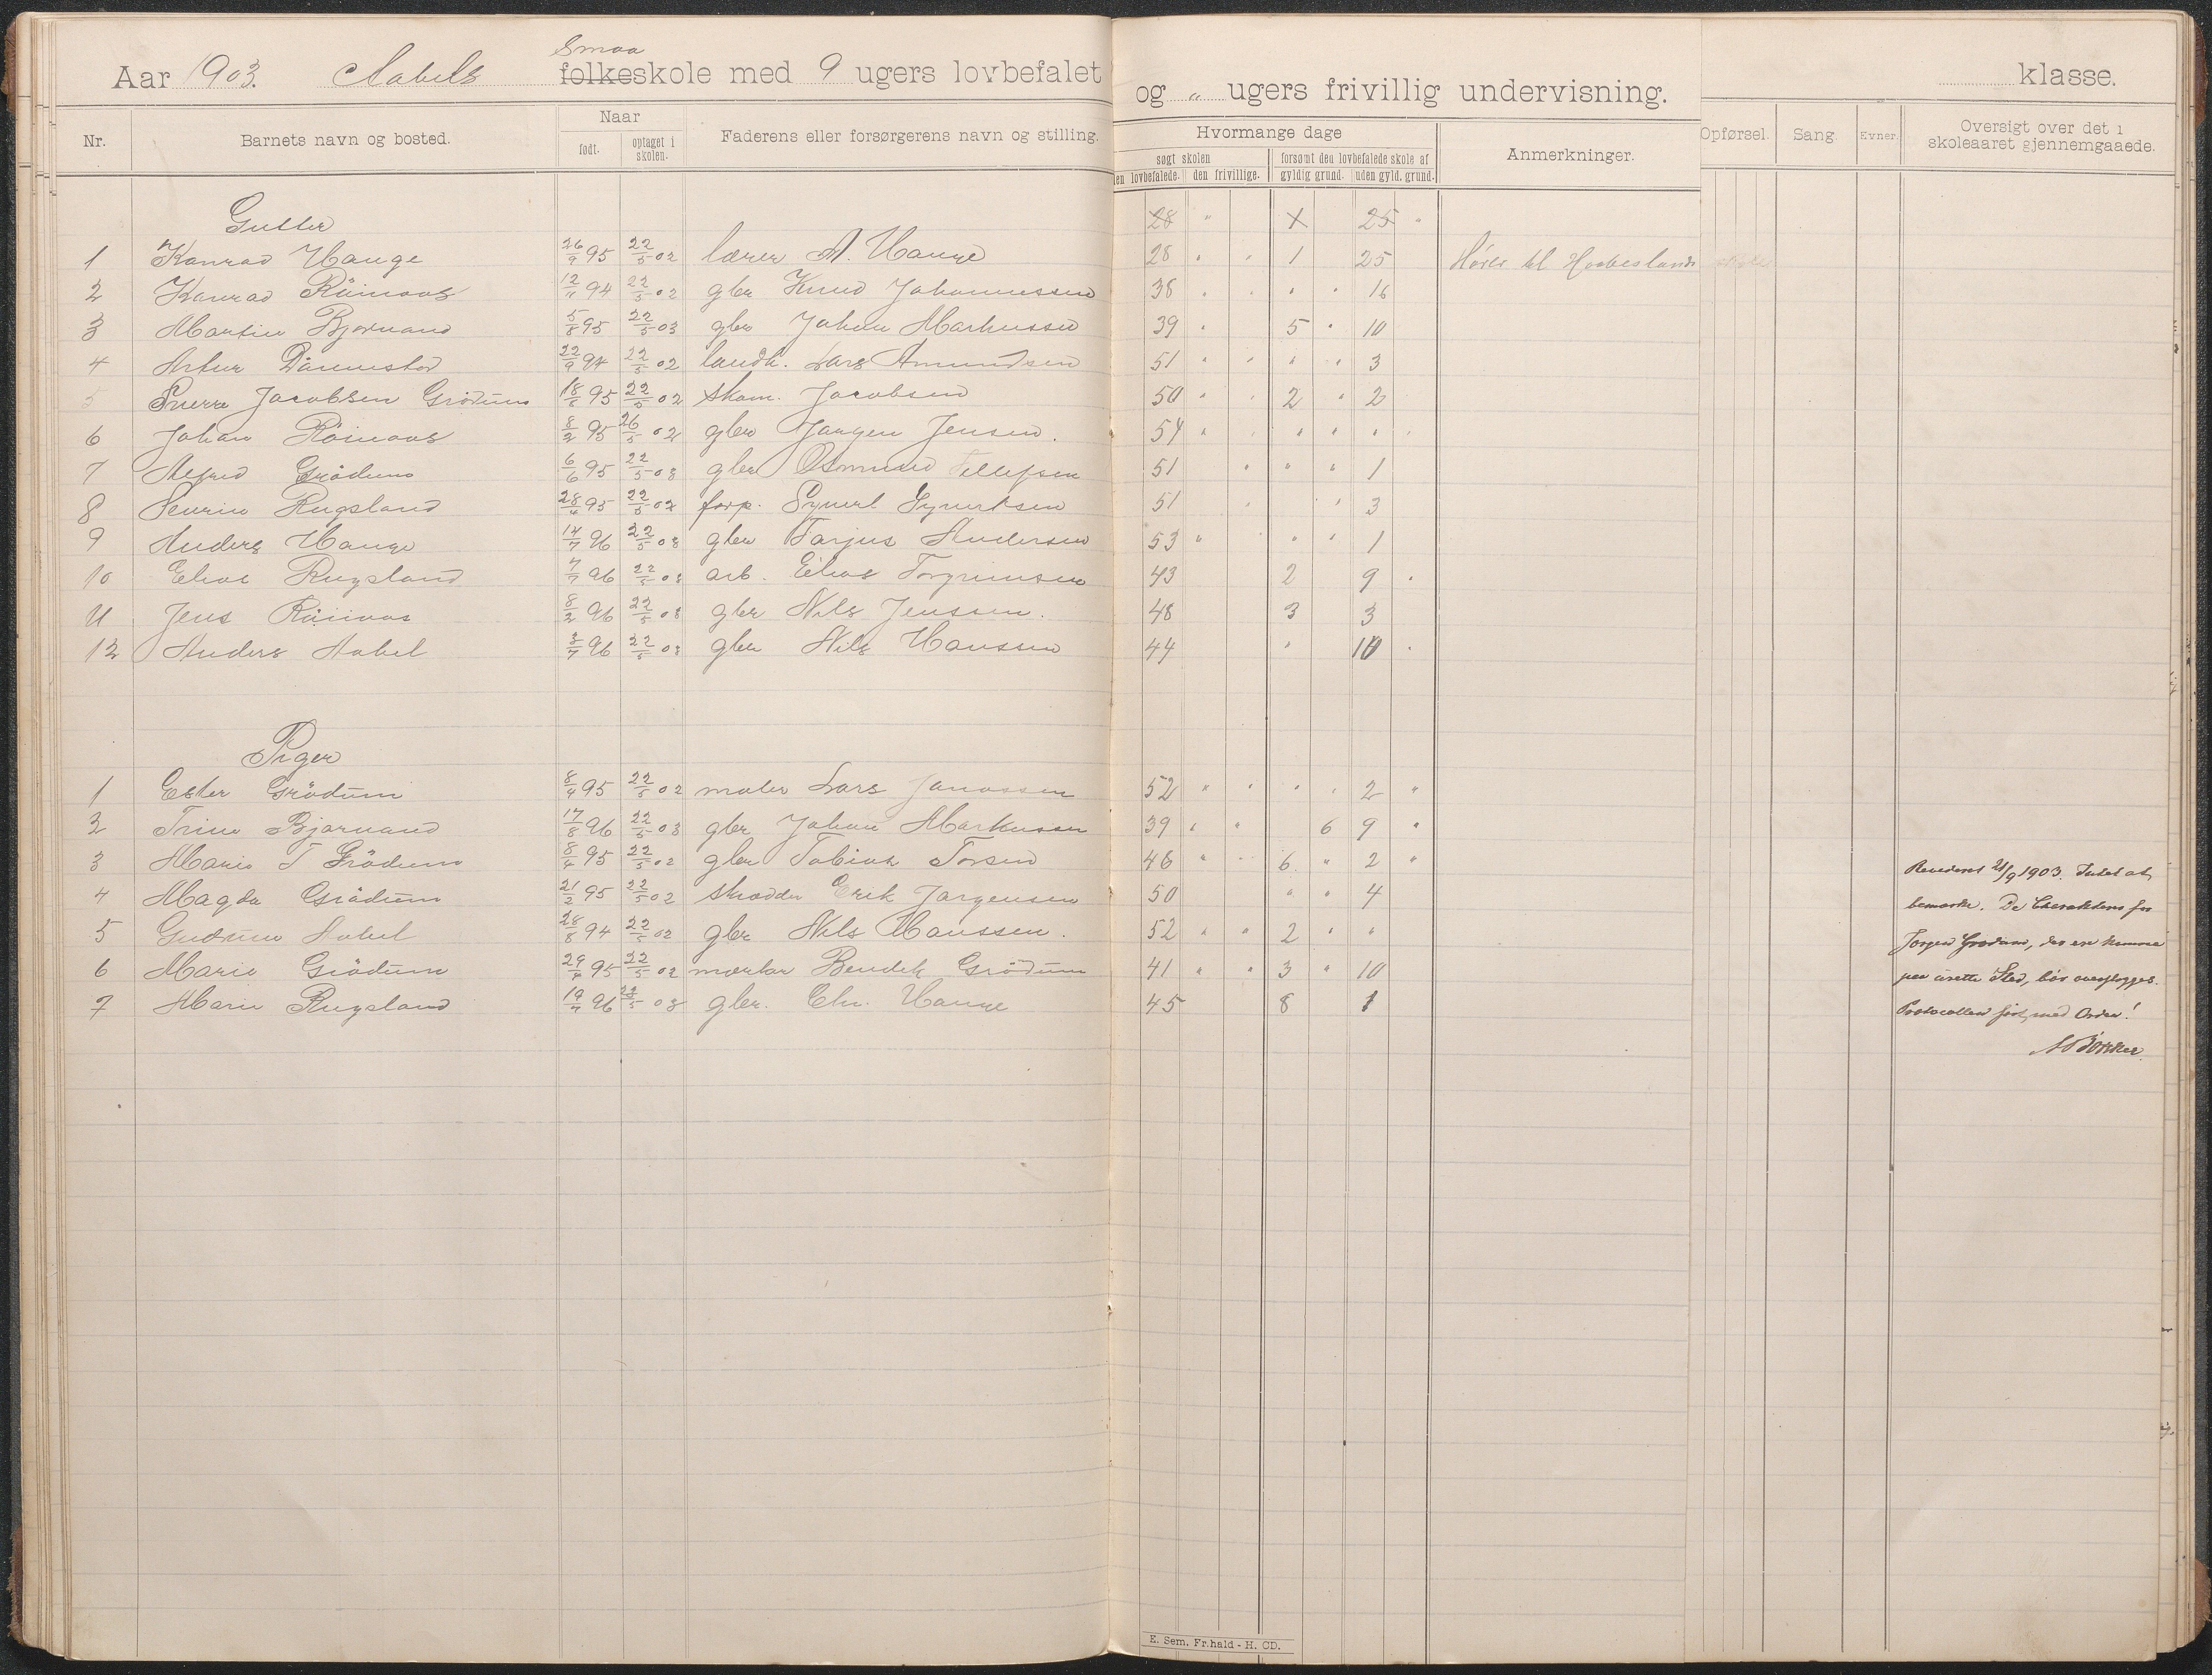 Smaa
Aar 1903. Aabels folkeskole med 9 ugers lovbefalet og „ ugers frivillig undervisning. klasse.
Nr. Barnets navn og bosted. Naar født. optaget i skolen. Faderens eller forsørgerens navn og stilling. Hvormange dage søgt skolen den lovbefalede. den frivillige. forsømt den lovbefalede skole af gyldig grund. uden gyld. grund. Anmerkninger. Opførsel. Sang. Evner. Oversigt over det i skoleaaret gjennemgaaede.
Gutter 28 „ X 25 „
1 Konrad Hauge 26/9 95 22/5 02 lærer A. Hauge 28 „ „ 1 25 Hører til Haabeslands skole
2 Konrad Röinaas 12/11 94 22/5 02 gbr Knud Johannessen 38 „ „ „ „ 16
3 Martin Bjornand 5/8 95 22/5 03 gbr Johan Markussen 39 „ 5 „ 10
4 Artur Dännestad 22/9 94 22/5 02 landh. Lars Amundsen 51 „ „ „ „ 3
5 Sverre Jacobsen Grödum 18/8 95 22/5 02 skom. Jacobsen 50 „ „ 2 „ 2
6 Johan Röinaas 8/2 95 26/5 02 gbr Jørgen Jensen. 54 „ „ „ „ „
7 Alfred Grödum 6/6 95 22/5 03 gbr Osmund Tellefsen 51 „ „ „ 1
8 Severin Rugsland 28/6 95 22/5 02 forp. Syvert Syvertsen 51 „ „ 3
9 Anders Hauge 14/7 96 22/5 03 gbr Tarjus Andersen 53 „ „ „ 1
10 Elias Rugsland 7/7 96 22/5 03 arb. Elias Torgrimsen 43 2 9 „
11 Jens Röinaas 8/2 96 22/5 03 gbr Nils Jenssen. 48 3 3
12 Anders Aabel 3/7 96 22/5 03 gbr Nils Hanssen 44 „ 10 „
Piger
1 Ester Grödum 8/4 95 22/5 02 maler Lars Janassen 52 „ „ „ „ 2 „
2 Trine Bjornand 17/8 96 22/5 03 gbr Johan Markussen 39 „ „ 6 9 „
3 Marie T Grödum 8/4 95 22/5 02 gbr Tobias Torsen 46 „ „ 6 „ 2 „
4 Magda Grödum 21/2 95 22/5 02 skrædder Erik Jørgensen 50 „ „ 4
5 Gudrun Aabel 28/8 94 22/5 02 gbr Nils Hanssen. 52 „ „ 2 „ „
6 Marie Grödum 29/4 95 22/5 02 mærker Bendik Grödum 41 „ „ 3 „ 10
7 Marie Rugsland 19/7 96 22/5 03 gbr. Chr. Hauge 45 8 1
Revideret 21/9 1903. Intet at
bemærke. De Charakterer for
Jørgen Grødum, der ere komne
paa urette Sted, bør overstryges.
Protocollen ført med Orden!
E. Sem. Fr.hald - H. CD.